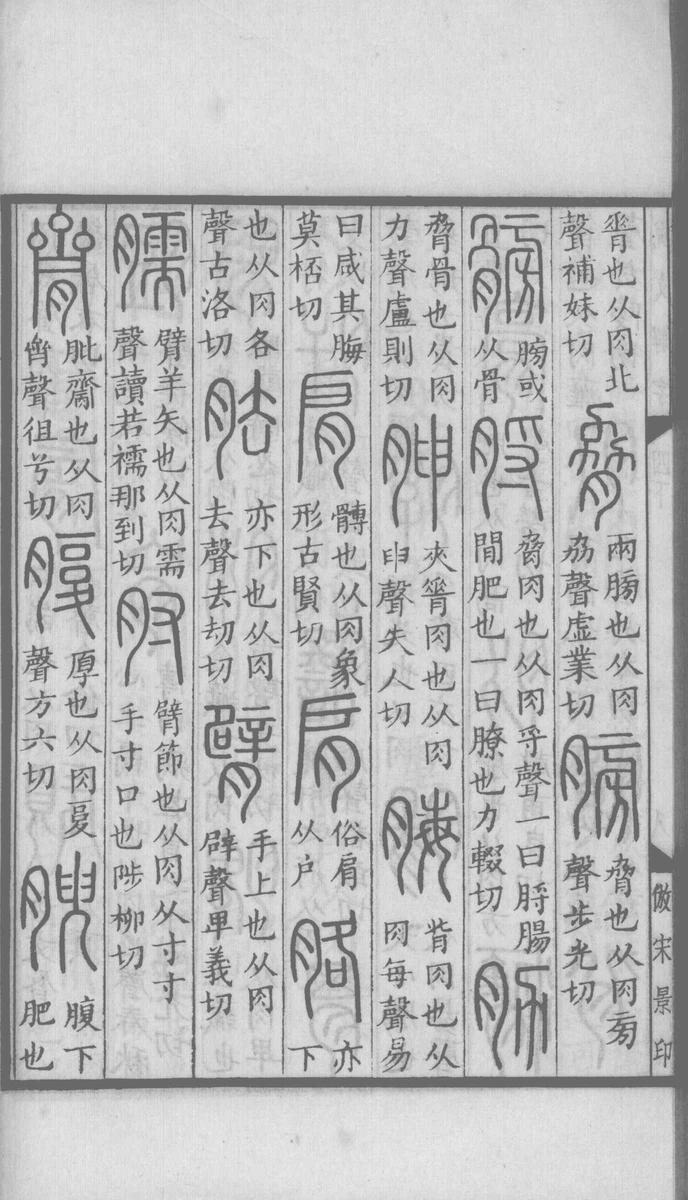 脊也从肉北聲補妹切 脅 兩膀也从肉劦聲虛業切 膀 脅也从肉㫄聲步光切
髈 膀或从骨 脟 脅肉也从肉寽聲一曰脟腸間肥也一曰膫也力輟切 肋
脅骨也从肉力聲盧則切 胂 夾脊肉也从肉申聲失人切 脢 背肉也从肉每聲易
曰咸其脢莫桮切 肩 髆也从肉象形古賢切 肩 俗肩从户 胳 亦下
也从肉各聲古洛切 胠 亦下也从肉去聲去劫切 臂 手上也从肉辟聲卑義切
臑 臂羊矢也从肉需聲讀若襦那到切 肘 臂節也从肉从寸寸手寸口也陟柳切
𪗆 肶齎也从肉齊聲徂兮切 腹 厚也从肉复聲方六切 腴 腹下肥也
倣宋景印